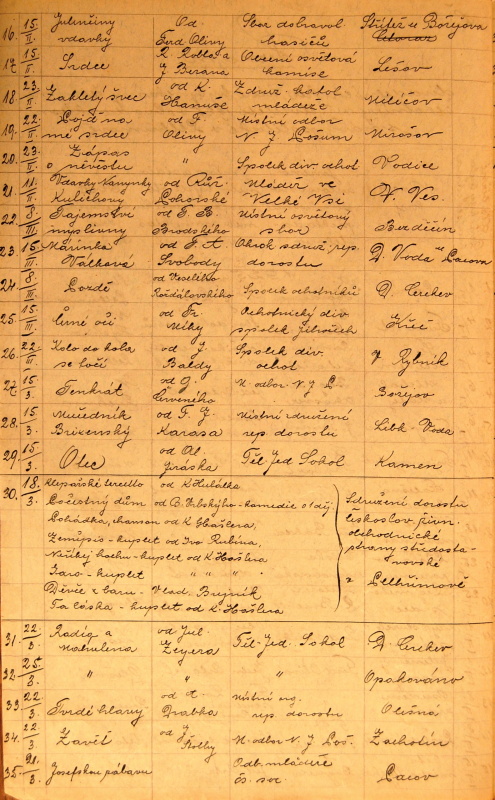 16. 15/II. Julinčiny vdavky Od Ferd Olivy Sbor dobrovol. hasičů Střítež u Božejova
17. 15/II. Srdce J. Berana Obecní osvětová komise Lešov
18. 23./II. Zakletý švec od K. Hanuše Združ. katol mládeže Milíčov
19. 22./II. né srdce od F. Olivy Místní odbor N. J. Pošum. Mirošov
20. 23./II. Zápas o nevěstu " Spolek div. ochot Vodice
21. 11./II. Vdavky Nanynky Kulichovy od Růž. Pohorské Mládež ve Velké Vsi V. Ves.
22. 8./III. Tajemství myslivny od F. B. Brodského Místní osvětový sbor Bezděčín
23. 15./III. Marinka Válková od J. A. Svobody Okrsk sdruž. rep. dorostu D. Voda u Pacova
24. 8./III. Pozdě od Veselého Spolek ochotníků D. Cerekev
25. 15./III. Černé oči od Fr. Ochotnický div. spolek
26. 22./III. Kolo do kola se točí od J. Baldy Spolek div. ochot V Rybník
27. 15./3. Tenkrát od J. Červeného M. odbor. N. J. P. Božejov
28. 15./3. Mučedník Brixenský od F. J. Karasa Místní sdružení rep dorostu Libk-Voda-
29. 15./3. Otec od Al. Jiráska Těl. Jed Sokol Kamen
30. 18./3. Klepařské tercetto od K. Hulátka
Počestný dům od B. Vrbskýho-komedie o 1 děj.
Pohádka, chanson od K. Hašlera,
kuplet od Ivo Rubína,
Neříkej hochu-kuplet od K. Hašlera
kuplet " " "
Děvče z baru- Vlad. Bujník
Ta láska-kuplet od K. Hašlera
Sdružení dorostu českoslov. živn. obchodnické strany středostavovské v Pelhřimově
31. 22./3. Radúz a Mahulena od Jul. Zeyera Těl-Jed. Sokol D. Cerekev
32. 25./3. " " " Opakováno
33. 22./3. Tvrdé hlavy od A. Drabka Místní org. rep dorostu Olešná
34. 22./3. Závěť od J. Štolby M. odbor N. J. Poš. Zachotín
35. 21./3. Josefskou zábavu Odb. mládeže čs. soc. Pacov